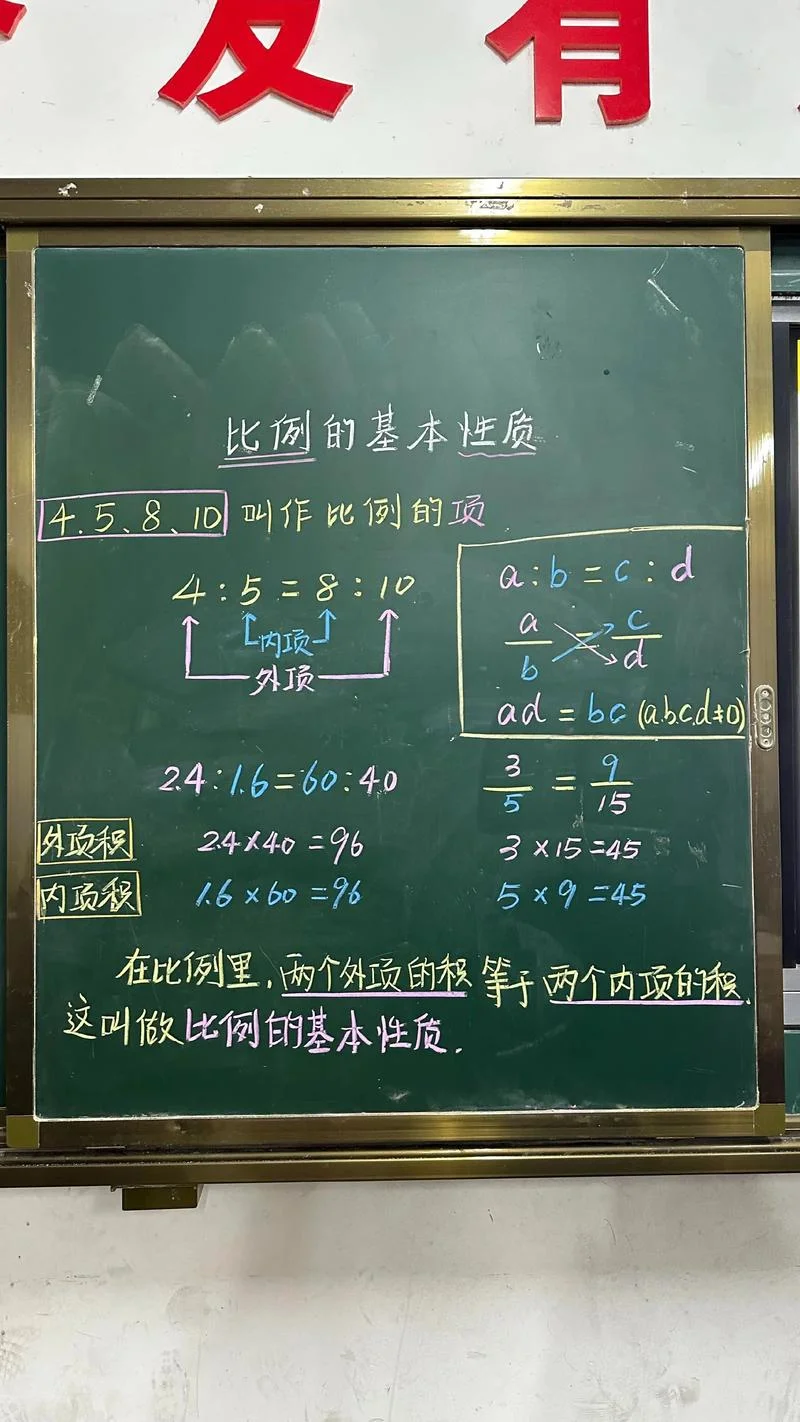 发有
比例的基本性质
4、5、8、10 叫作比例的项
4:5=8:10
内项
外项
a:b=c:d
a/b=c/d
ad=bc(a.b.c.d≠0)
2.4:1.6=60:40
3/5=9/15
外项积 2.4×40=96 3×15=45
内项积 1.6×60=96 5×9=45
在比例里,两个外项的积等于两个内项的积.
这叫做比例的基本性质.